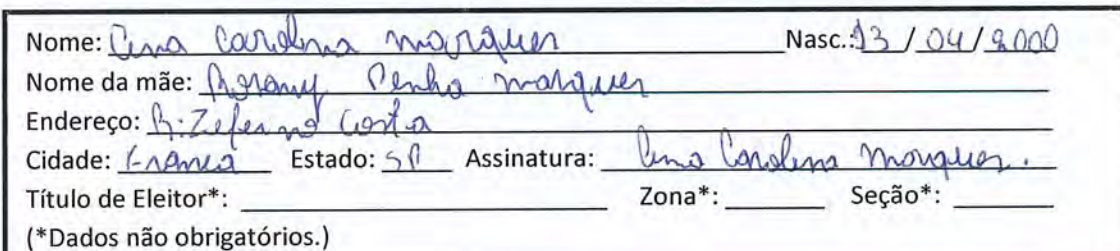 Nome: Ana Carolina Marques Nasc.: 13/04/2000
Nome da mãe: Rosany Penha Marques
Endereço: R: Zeferino Costa
Cidade: Franca Estado: SP Assinatura: Ana Carolina Marques.
Título de Eleitor*: Zona*: Seção*:
(*Dados não obrigatórios.)